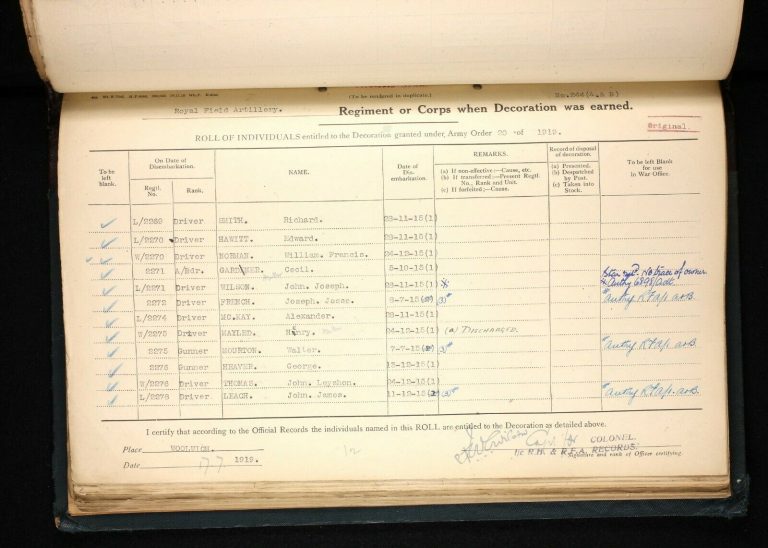 (To be rendered in duplicate.)
No.244(4.A B)
Royal Field Artillery. Regiment or Corps when Decoration was earned.
Original.
ROLL OF INDIVIDUALS entitled to the Decoration granted under, Army Order 20 of 1919.
To be left blank. On Date of Disembarkation. Regtl. No. Rank. NAME. Date of Disembarkation. REMARKS. (a) If non-effective:—Cause, etc. (b) If transferred:—Present Regtl. No., Rank and Unit. (c) If forfeited:—Cause. Record of disposal of decoration. (a) Presented. (b) Despatched by Post. (c) Taken into Stock. To be left Blank for use in War Office.
L/2269 Driver SMITH. Richard. 28-11-15(1)
L/2270 Driver HAWITT. Edward. 28-11-15(1)
W/2270 Driver NORMAN. William. Francis. 24-12-15(1)
2271 A/Bdr. Cecil. 5-10-15(1) No trace of
L/2271 Driver WILSON. John. Joseph. 28-11-15(1) Authy 6898/Adt.
2272 Driver FRENCH. Joseph. 8-7-15 Authy
L/2274 Driver MC.KAY. Alexander. 28-11-15(1)
W/2275 Driver MAYLED. Henry. 24-12-15(1) (a) DISCHARGED.
2275 Gunner MOURTON. Walter. 7-7-15 Authy
2276 Gunner HEAVER. George. 12-12-15(1)
W/2276 Driver THOMAS. John. Leyshon. 24-12-15(1)
L/2278 Driver LEACH. John. James. 11-12-15 Authy
I certify that according to the Official Records the individuals named in this ROLL are entitled to the Decoration as detailed above.
Place WOOLWICH.
COLONEL.
I/c R.H. & R.F.A. RECORDS.
Date 1919.
Signature and rank of Officer certifying.